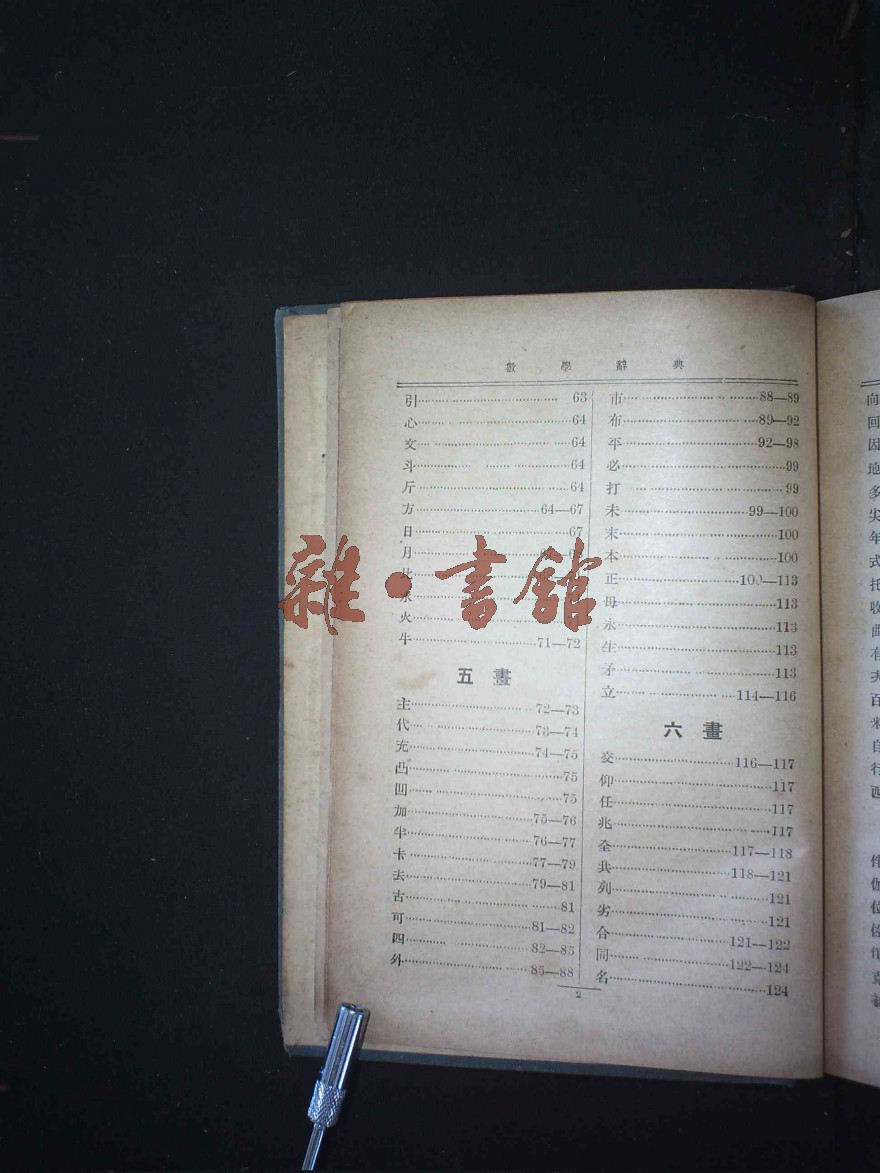 數學辭典
引 63
心 64
文 64
斗 64
斤 64
方 64—67
日 67
月
比
水
火
牛 71—72
五畫
主 72—73
代 73—74
充 74—75
凸 75
凹 75
加 75—76
半 76—77
卡 77—79
去 79—81
古 81
可 81—82
四 82—85
外 85—88
市 88—89
布 89—92
平 92—98
必 99
打 99
未 99—100
末 100
本 100
正 100—113
母 113
永 113
生 113
矛 113
立 114—116
六畫
交 116—117
仰 117
任 117
兆 117
全 117—118
共 118—121
列 121
劣 121
合 121—122
同 122—124
名 124
2
雜·書館
向
回
因
地
多
尖
年
式
托
收
曲
有
百
自
行
西
位